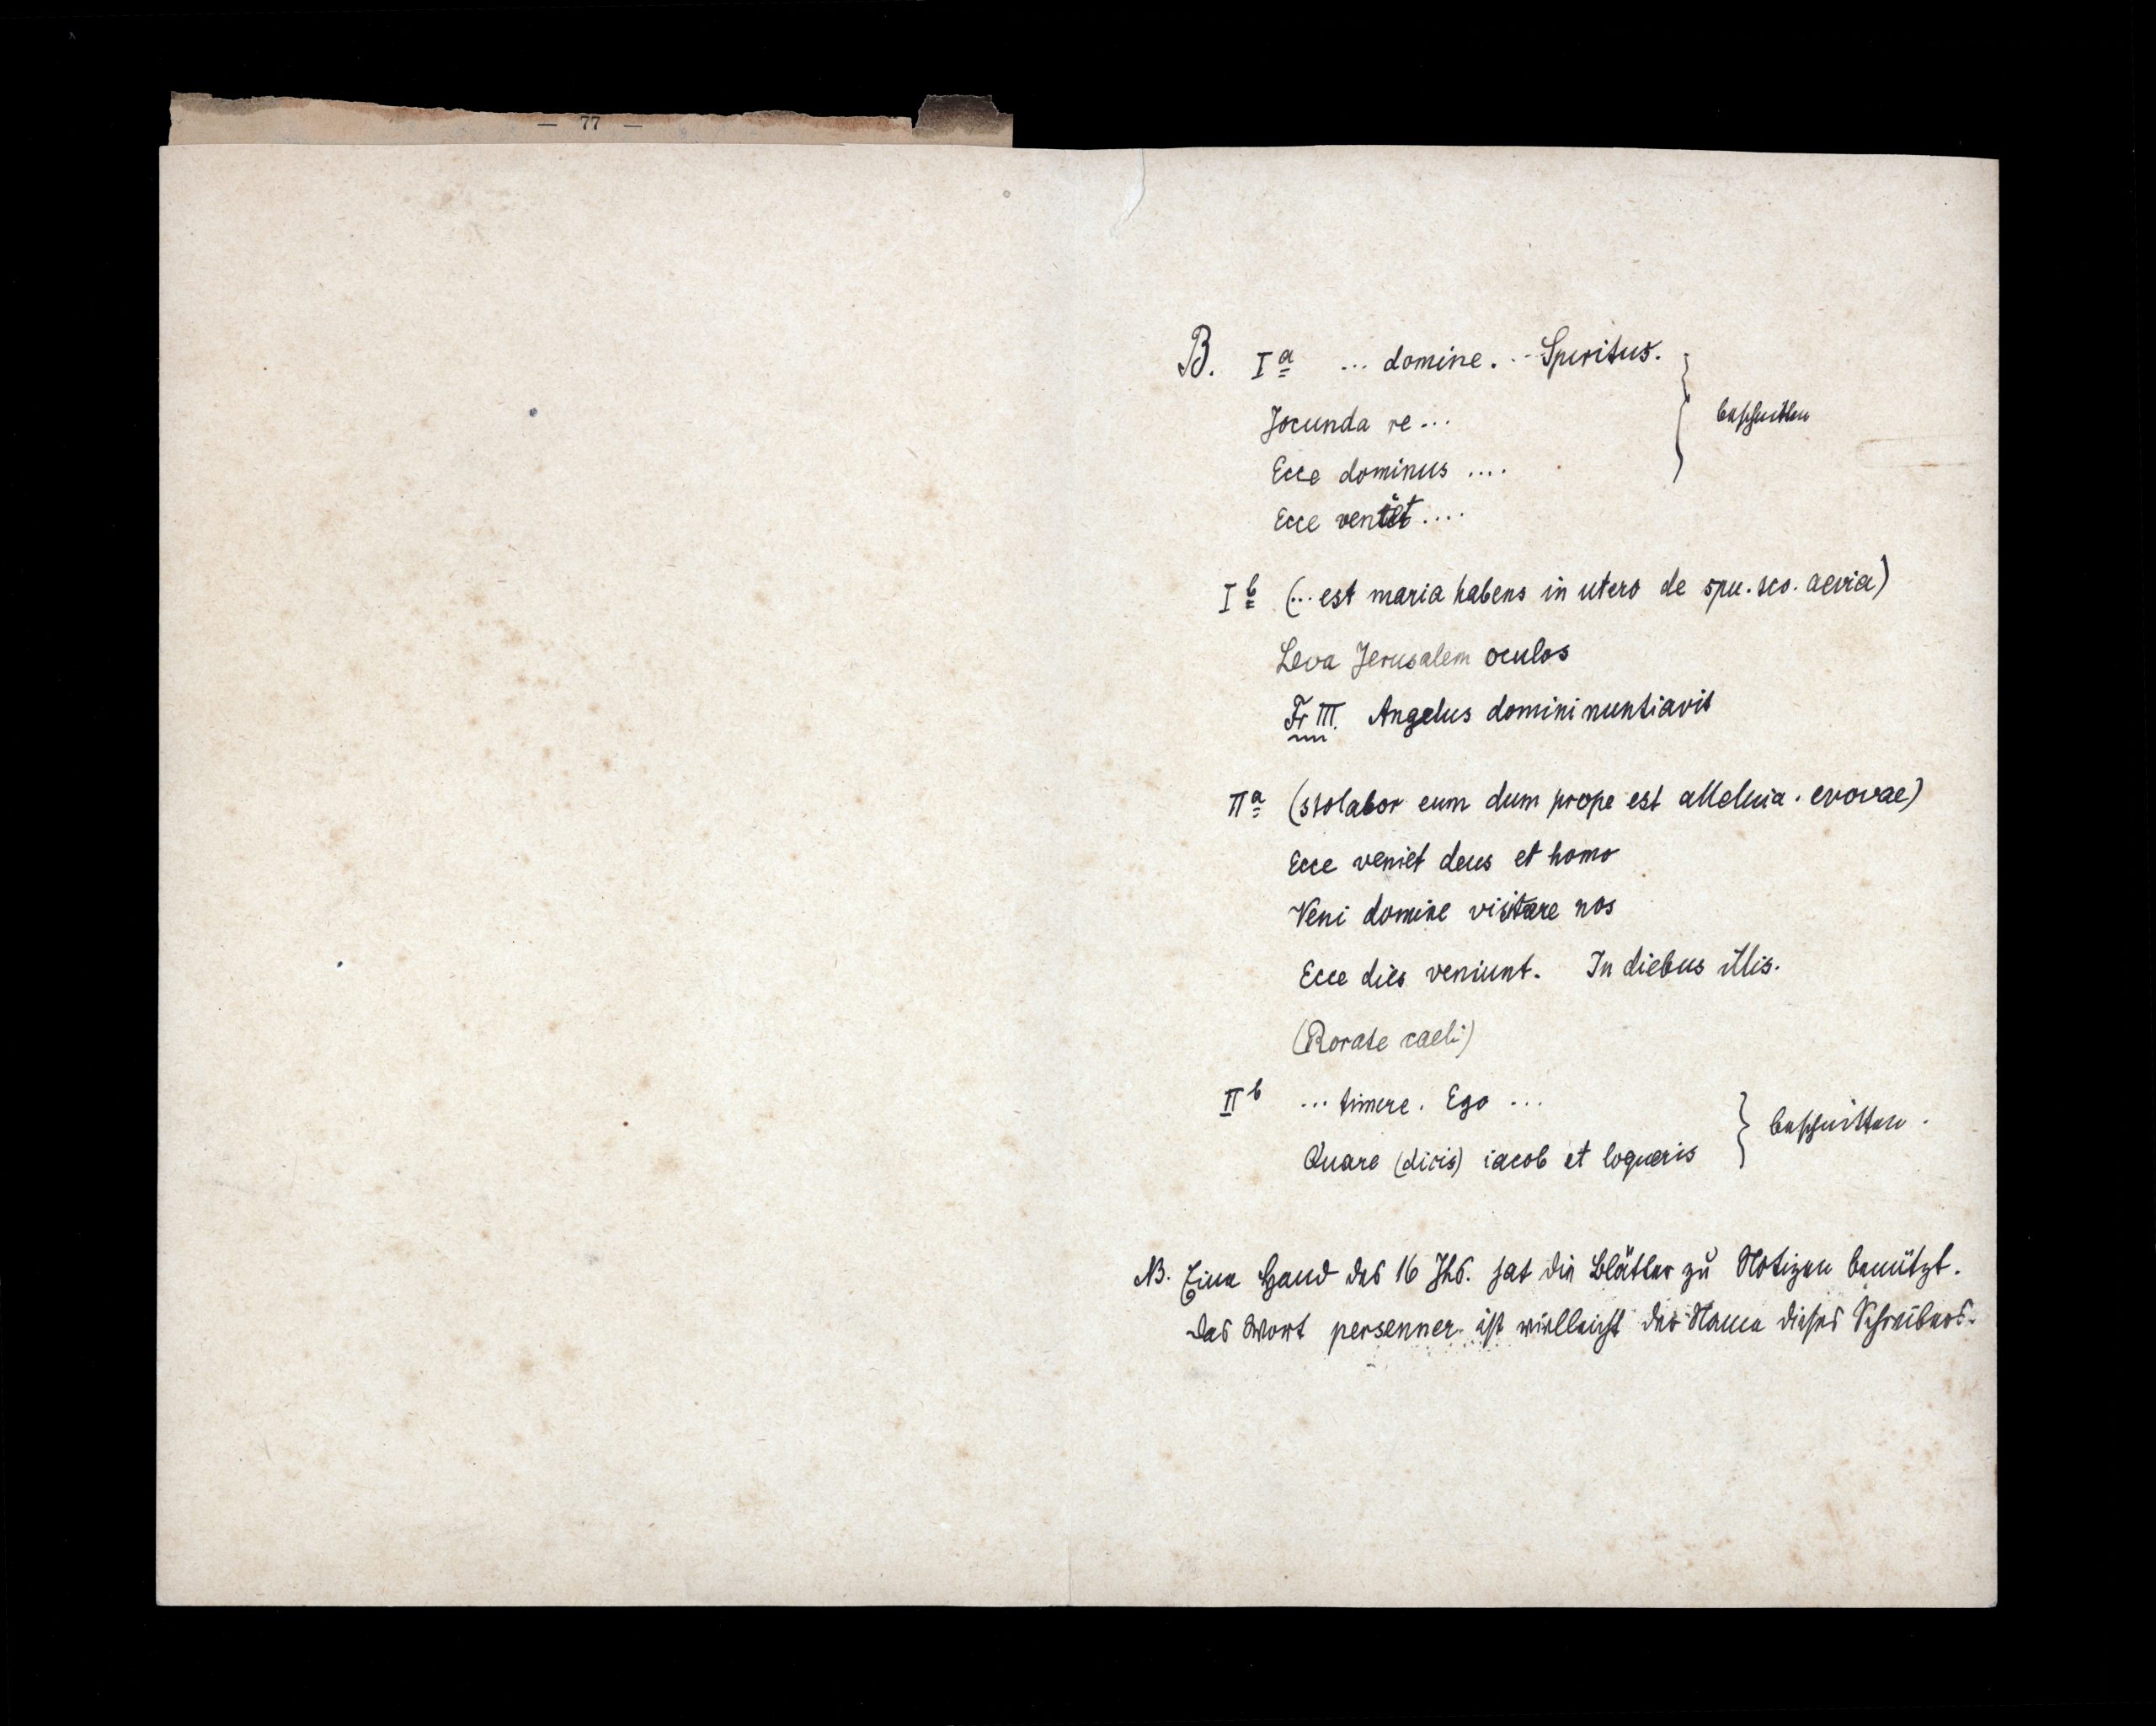 — 77 —
B. I a ... domine. .. Spiritus.
Jocunda re ...
Ecce dominus ....
beschnitten
Ecce veniet ....
I b (... est maria habens in utero de spu. sco. aevia)
Leva Jerusalem oculos
Fr III. Angelus domini nuntiavit
II a (stolabor eum dum prope est alleluia. evovae)
Ecce veniet deus et homo
Veni domine visitare nos
Ecce dies veniunt. In diebus illis.
(Rorate caeli)
II b ... timere. Ego ...
Quare (dicis) iacob et loqueris
beschnitten.
NB. Eine Hand des 16 Jhs. hat die Blätter zu Notizen benützt.
Das Wort persenner ist vielleicht der Name dieses Schreibers.